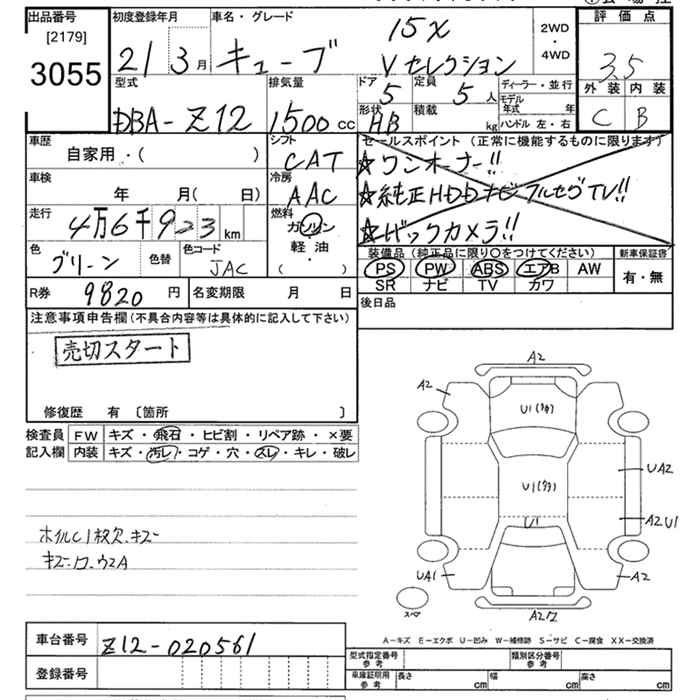 出品番号 初度登録年月 車名・グレード 評価点
[2179]
3055
21 3月 キューブ 15X Vセレクション
2WD
・
4WD
3.5
外装 内装
C B
型式 排気量 ドア 定員 ディーラー・並行
DBA-Z12 1500cc 5 5人
形状 積載 モデル年式 年
HB kg ハンドル 左・右
車歴 シフト セールスポイント (正常に機能するものに限ります)
自家用・( ) CAT ☆ワンオーナー!!
車検 冷房 ☆純正HDDナビフルセグTV!!
年 月( 日) AAC
走行 燃料 ☆バックカメラ!!
4万6千923km ガソリン
軽油・
( )
色 色替 色コード
グリーン JAC
装備品 (純正品に限り〇をつけてください) 新車保証書
PS PW ABS エアB AW 有・無
SR ナビ TV カワ
R券 9820円 名変期限 月 日 後日品
注意事項申告欄 (不具合内容等は具体的に記入して下さい)
売切スタート
修復歴 有 〔箇所 〕
検査員 FW キズ・飛石・ヒビ割・リペア跡・×要
記入欄 内装 キズ・汚レ・コゲ・穴・スレ・キレ・破レ
ホイルC1枚欠.キズ
A2
A2
U1
U1
U1
UA2
A2U1
UA1
A2
スペア
A-キズ E-エクボ U-凹み W-補修跡 S-サビ C-腐食 XX-交換済
車台番号 Z12-020561
登録番号
型式指定番号 参考 類別区分番号 参考
車庫証明用 参考 長さ cm 幅 cm 高さ cm